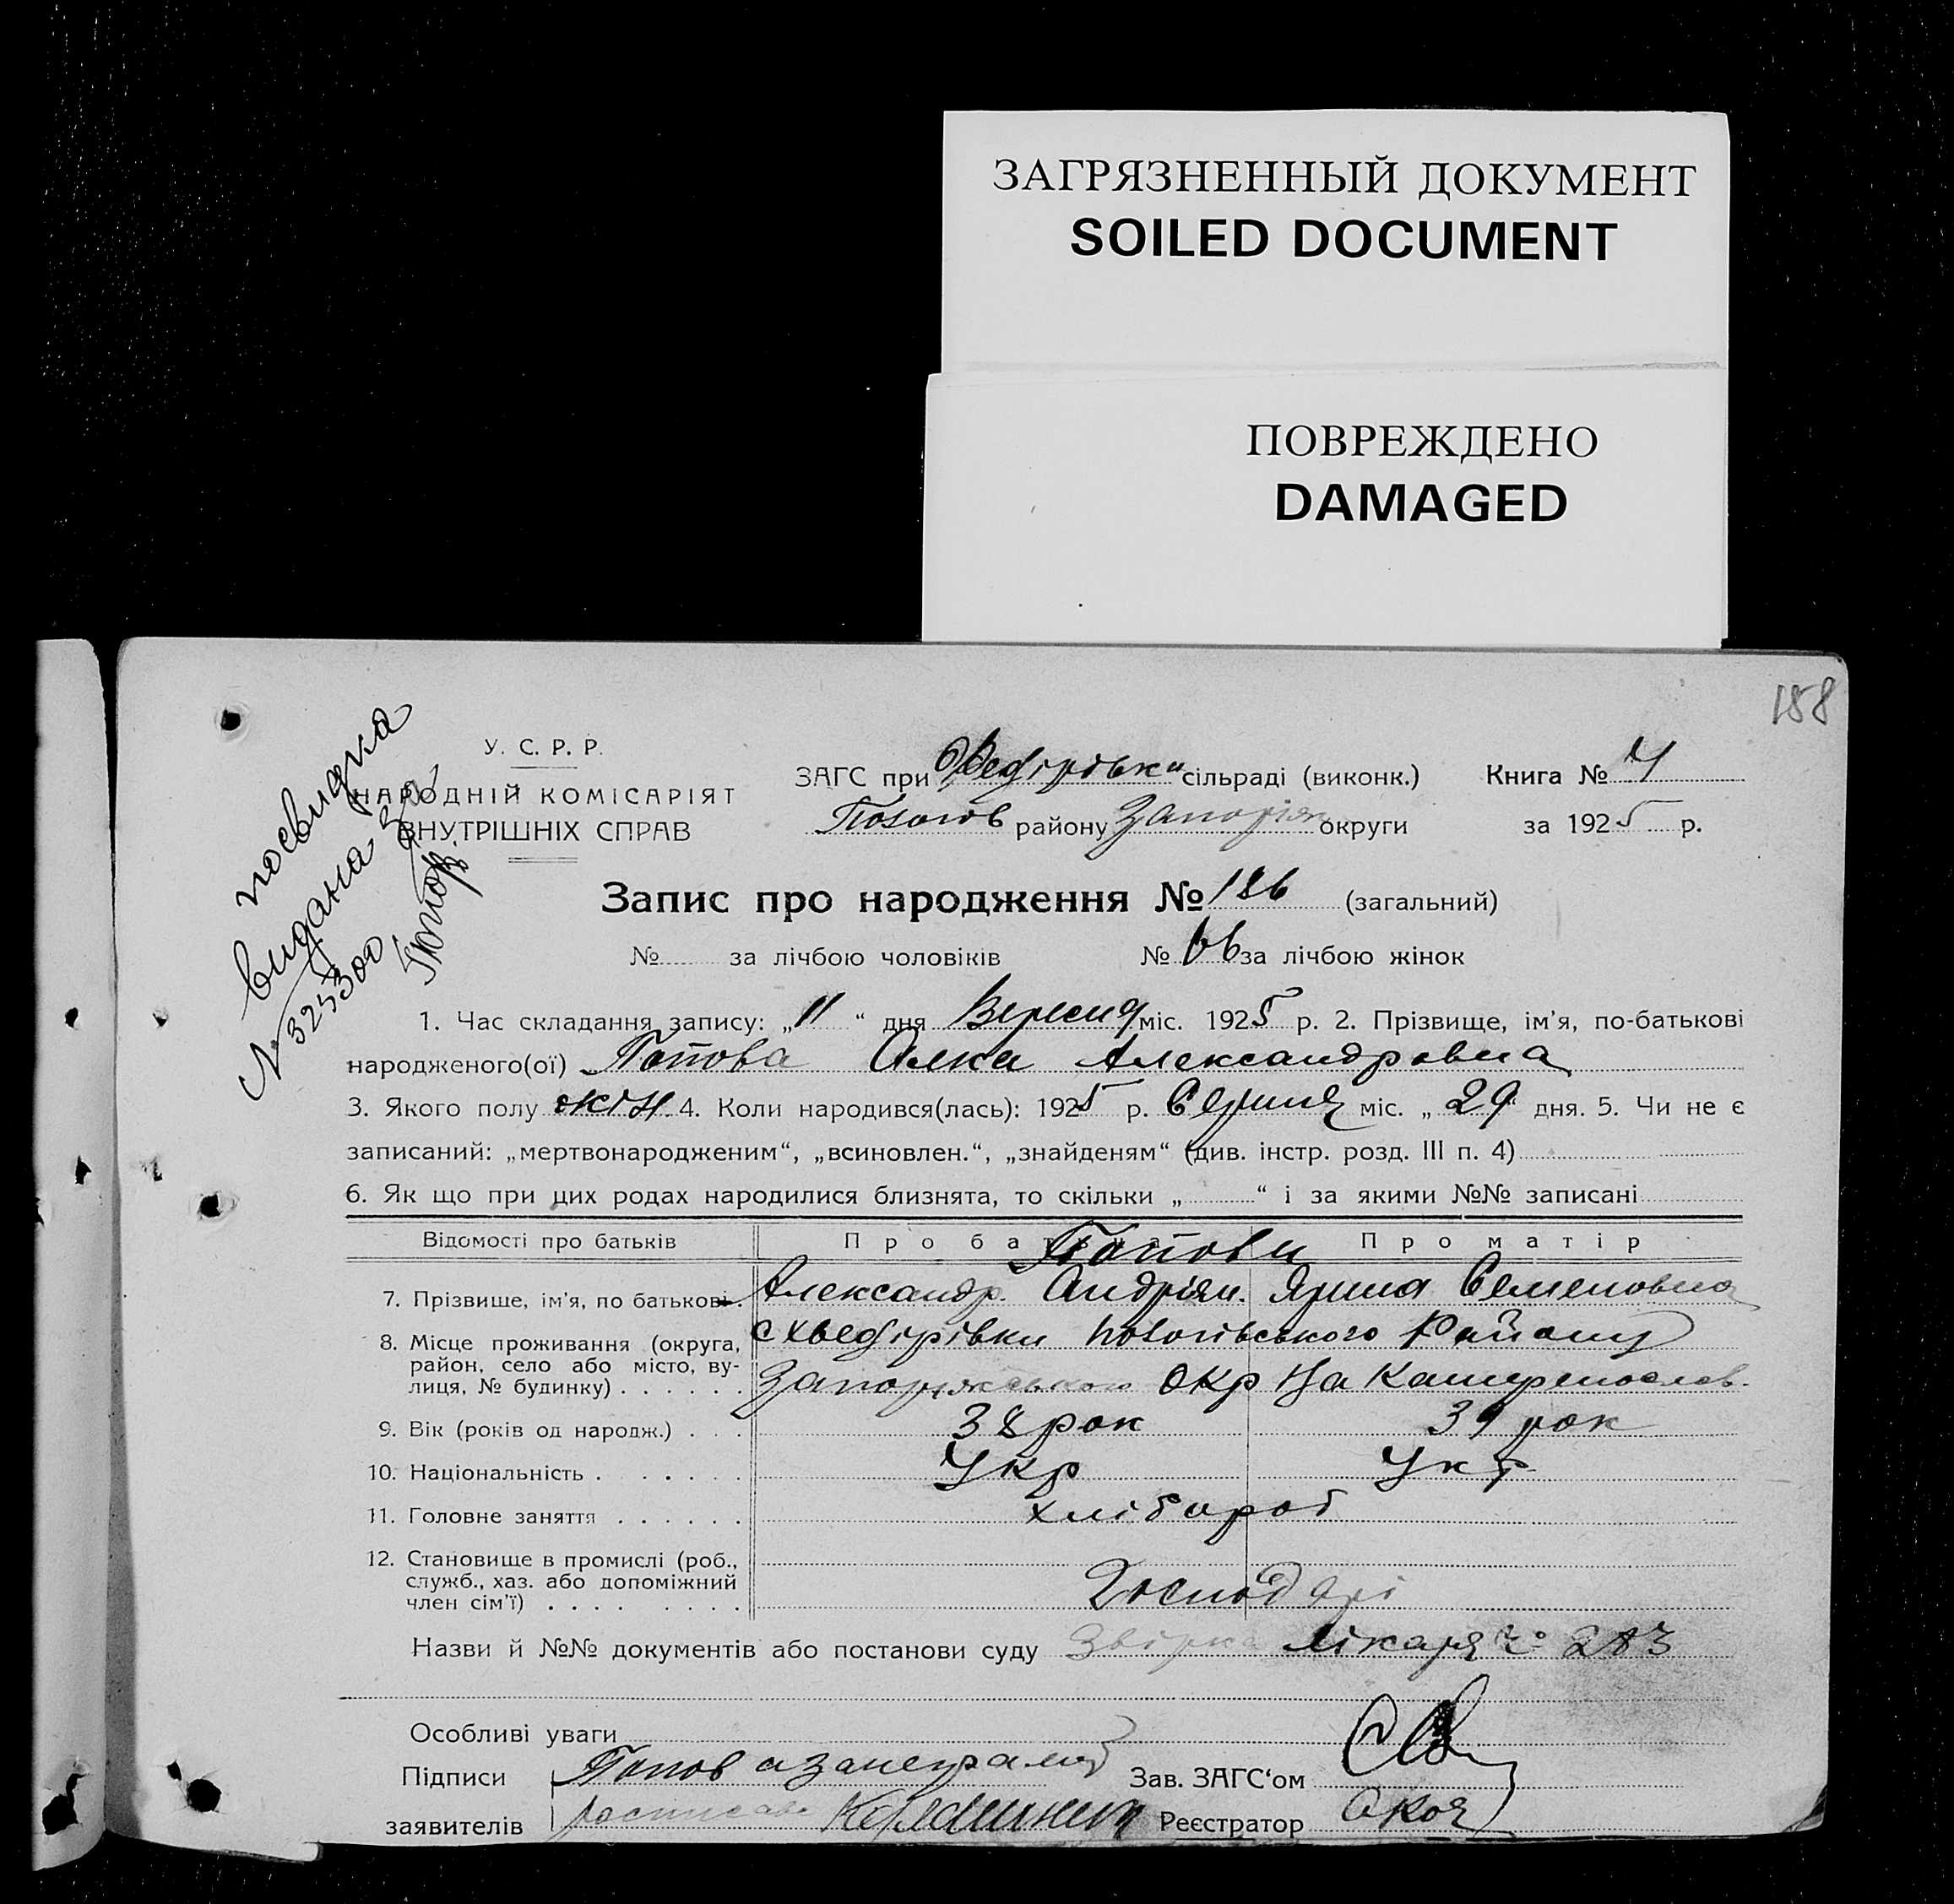 ЗАГРЯЗНЕННЫЙ ДОКУМЕНТ
SOILED DOCUMENT
ПОВРЕЖДЕНО
DAMAGED
158
посвидка
видана
N 325300
У. С. Р. Р.
НАРОДНІЙ КОМІСАРІЯТ
ВНУТРІШНІХ СПРАВ
ЗАГС при Федірівки сільраді (виконк.) Книга № 4
Пологов району Запоріж округи за 1925 р.
Запис про народження № 186 (загальний)
№ за лічбою чоловіків № 66 за лічбою жінок
1. Час складання запису: „11“ дня Вересня міс. 1925 р. 2. Прізвище, ім'я, по-батькові
народженого(ої) Попова Александровна
3. Якого полу жін 4. Коли народився(лась): 1925 р. Серпня міс. „29“ дня. 5. Чи не є
записаний: „мертвонародженим“, „всиновлен.“, „знайденям“ (див. інстр. розд. III п. 4)
6. Як що при цих родах народилися близнята, то скільки „ “ і за якими №№ записані
Відомості про батьків Про батька Про матір
Попови
7. Прізвище, ім'я, по батькові. Александр Андріян. Ярина Семеновна
8. Місце проживання (округа, с Хведірівки Пологівського Району
район, село або місто, ву-
лиця, № будинку) Запорижського Окр На Катеренослав.
9. Вік (років од народж.) 38 рок 39 рок
10. Національність Укр Укр
11. Головне заняття хлібороб
12. Становище в промислі (роб.,
служб., хаз. або допоміжний
член сім'ї) Господарі
Назви й №№ документів або постанови суду лікаря 283
Особливі уваги
Підписи Попов а за неграмот Зав. ЗАГС'ом
заявителів росписавс Реєстратор